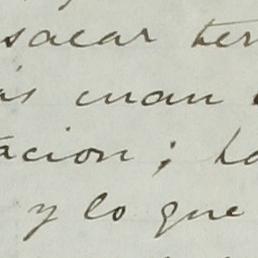 sacar ter
as cuan
tacion; ha
y lo que